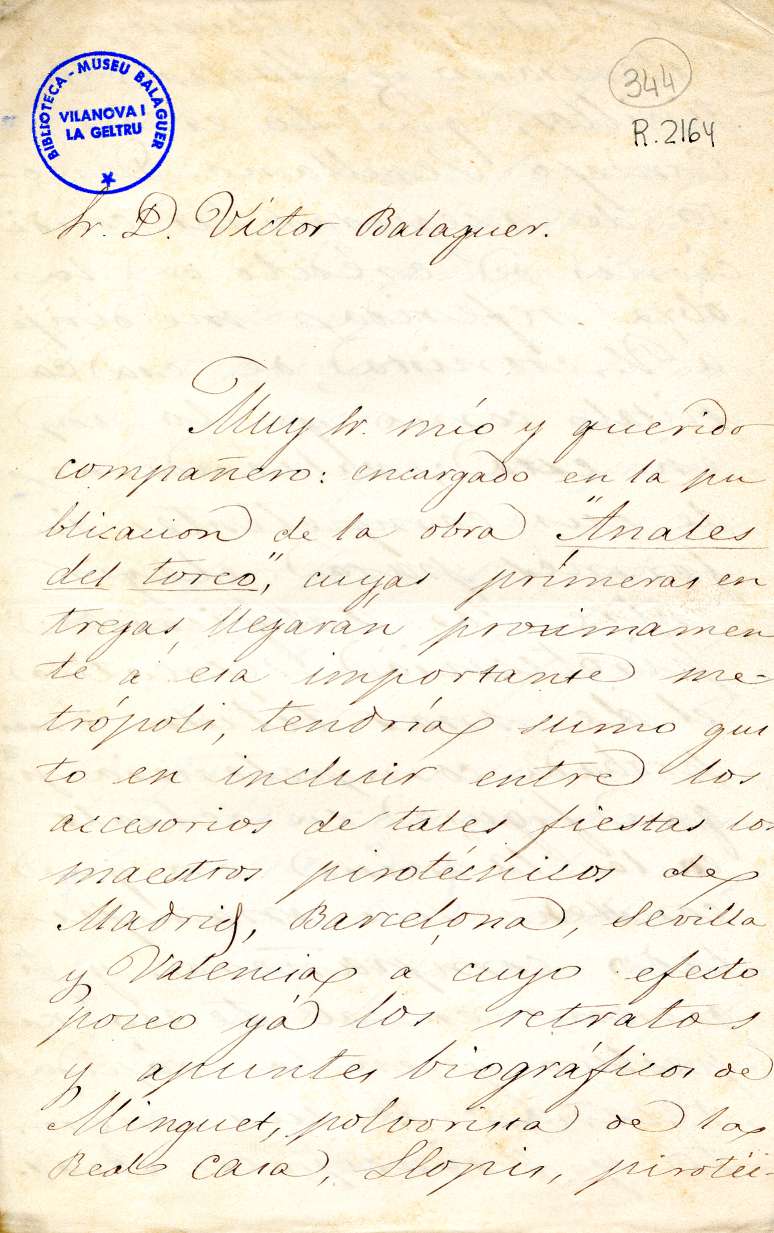 BIBLIOTECA - MUSEU BALAGUER
VILANOVA I
LA GELTRU
344
R. 2164
Sr. D. Víctor Balaguer.
Muy Sr. mío y querido
compañero: encargado en la pu
blicacion de la obra "Anales
del toreo", cuyas primeras en
tregas, llegarán proximamen
te á esa importante me-
trópoli, tendría sumo gus
to en incluir entre los
accesorios de tales fiestas los
maestros pirotécnicos de
Madrid, Barcelona, Sevilla
y Valencia á cuyo efecto
poseo yá los retratos
y apuntes biográficos de
Minguet, polvorista de la
Real casa, Llopis, pirotéc-